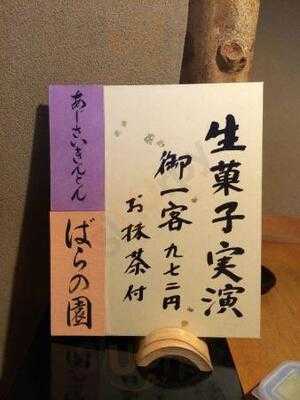 生菓子実演
御一客九七二円
お抹茶付
あじさいきんとん
ばらの園